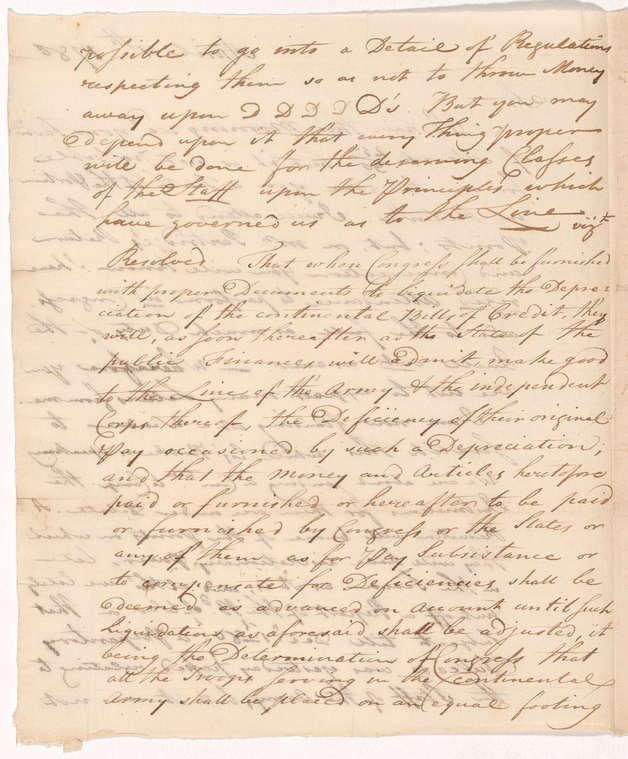 possible to go into a Detail of Regulations
respecting them so as not to throw Money
away upon D D D D D's. But you may
depend upon it that every Thing proper
will be done for the deserving Classes
of the Staff upon the Principles which
have governed us as to the Line vizt
Resolved That when Congress shall be furnished
with proper Documents to liquidate the Depre-
ciation of the continental Bills of Credit, they
will, as soon thereafter as the state of the
public Finances will admit, make good
to the Line of the Army & the independent
Corps thereof, the Deficiency of their original
Pay occasioned by such a Depreciation;
and that the Money and Articles heretofore
paid or furnished or hereafter to be paid
or furnished by Congress or the States or
any of them as for Pay Subsistance or
to compensate for Deficiencies shall be
deemed as advanced on account until such
Liquidation as aforesaid shall be adjusted, it
being the Determination of Congress that
all the Troops serving in the Continental
Army shall be placed on an equal footing